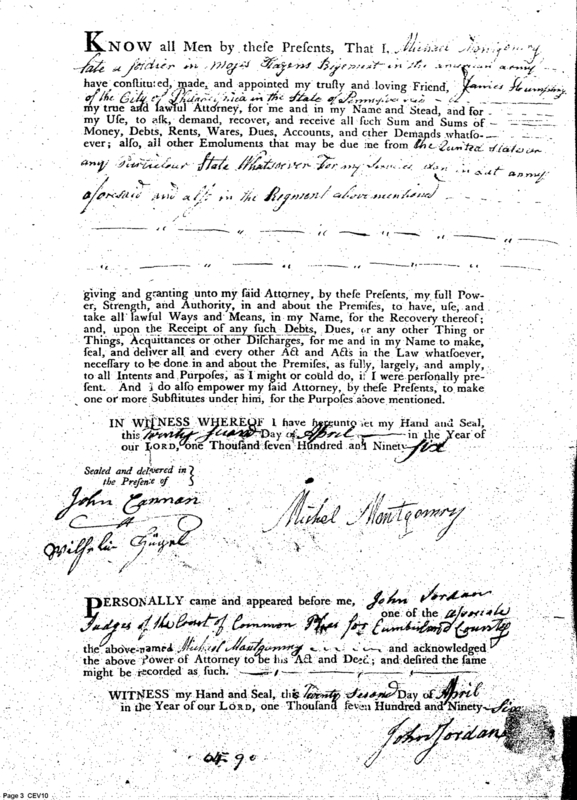 KNOW all Men by theſe Preſents, That I, Michael Montgomery
late a ſoldier in Hazens Regement in the american army
have conſtituted, made, and appointed my truſty and loving Friend, James Humphrey
of the City of in the State of
my true and lawful Attorney, for me and in my Name and Stead, and for
my Uſe, to aſk, demand, recover, and receive all ſuch Sum and Sums of
Money, Debts, Rents, Wares, Dues, Accounts, and other Demands whatso-
ever; alſo, all other Emoluments that may be due me from the United States or
any State Whatsoever For my Services in army
aforesaid and in the Regment above mentioned
giving and granting unto my ſaid Attorney, by theſe Preſents, my full Pow-
er, Strength, and Authority, in and about the Premiſes, to have, uſe, and
take all lawful Ways and Means, in my Name, for the Recovery thereof;
and, upon the Receipt of any ſuch Debts, Dues, or any other Thing or
Things, Acquittances or other Diſcharges, for me and in my Name to make,
ſeal, and deliver all and every other Act and Acts in the Law whatſoever,
neceſſary to be done in and about the Premiſes, as fully, largely, and amply,
to all Intents and Purpoſes, as I might or could do, if I were perſonally pre-
ſent. And I do alſo empower my ſaid Attorney, by theſe Preſents, to make
one or more Subſtitutes under him, for the Purpoſes above mentioned.
IN WITNESS WHEREOF I have hereunto ſet my Hand and Seal,
this Twenty Day of April in the Year of
our LORD, one Thouſand ſeven Hundred and Ninety Six
Sealed and delivered in
the Preſence of
John Cannan
Michel Montgomry
Wilhelm
PERSONALLY came and appeared before me, John Jordan
one of the aſsociate
Judges of the Court of Common Pleas for Cumberland County
the above-named Michael Montgomery and acknowledged
the above Power of Attorney to be his Act and Deed; and deſired the ſame
might be recorded as ſuch.
WITNESS my Hand and Seal, this Twenty Second Day of April
in the Year of our LORD, one Thouſand ſeven Hundred and Ninety-Six
John Jordan
Page 3 CEV10